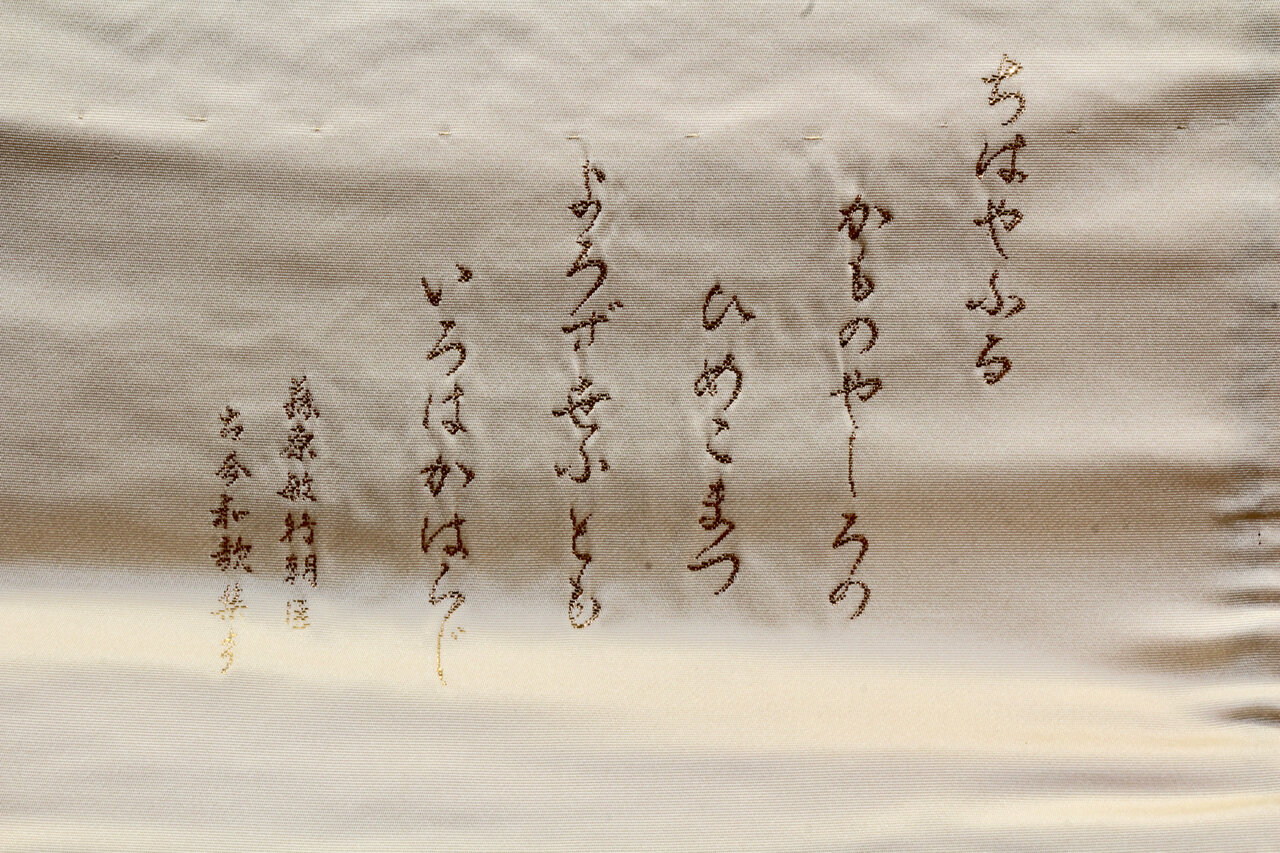 ちはやふる
かものやしろの
ひめこまつ
よろず世ふとも
いろはかはらじ
藤原敏行朝臣
古今和歌集より